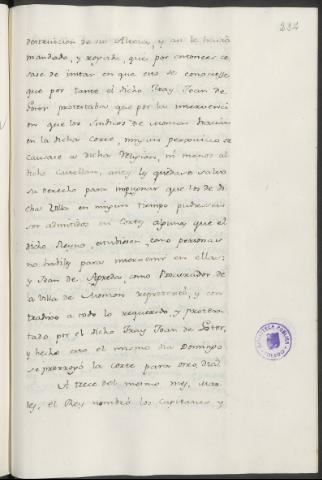 234
destruicion de su Alteza, y an le havia
mandado, y rogado, que por entonces ce
sase de instar en que esto se conosciesse
que por tanto el dicho Fray Joan de
Soter protestaba, que por la intervencion
que los Sindicos de Monson hacian
en la dicha Corte, ningun perjuicio se
causase a dicha Religion, ni menos al
dicho Castellan, antes le quedase salvo
su derecho para impugnar que los de di
cha Villa en ningun tiempo pudiessen
ser admitidos en Cortes algunas, que el
dicho Reyno, tuviesen, como personas
no habiles para intervenir en ellas;
y Joan de Apredes, como Procurador de
la Villa de Monson reprotestó, y con
tradixo a todo lo requerido, y protes
tado por el dicho Fray Joan de Soter,
y hecho esto el mismo dia Domingo
se prorrogó la Corte para otro dia.
A trece del mismo mes, Mar
tes, el Rey nombró los Capitanes, y
BIBLIOTECA PUBLICA
TOLEDO